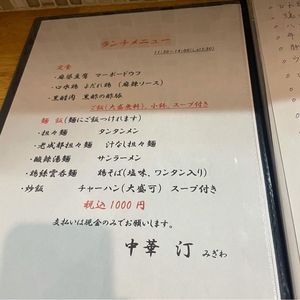 ランチメニュー
11:30~14:00(L.O13:30)
定食
・麻婆豆腐 マーボードウフ
・口水鶏 よだれ鶏 (麻辣ソース)
・黒醋肉 黒酢の酢豚
ご飯(大盛無料)、小鉢、スープ付き
麺 飯(麺にご飯つけれます)
・担々麺 タンタンメン
・老成都担々麺 汁なし担々麺
・酸辣湯麺 サンラーメン
・鶏絲雲呑麺 鶏そば(塩味、ワンタン入り)
・炒飯 チャーハン(大盛可) スープ付き
税込1000円
支払いは現金のみでお願します。
中華 汀 みぎわ